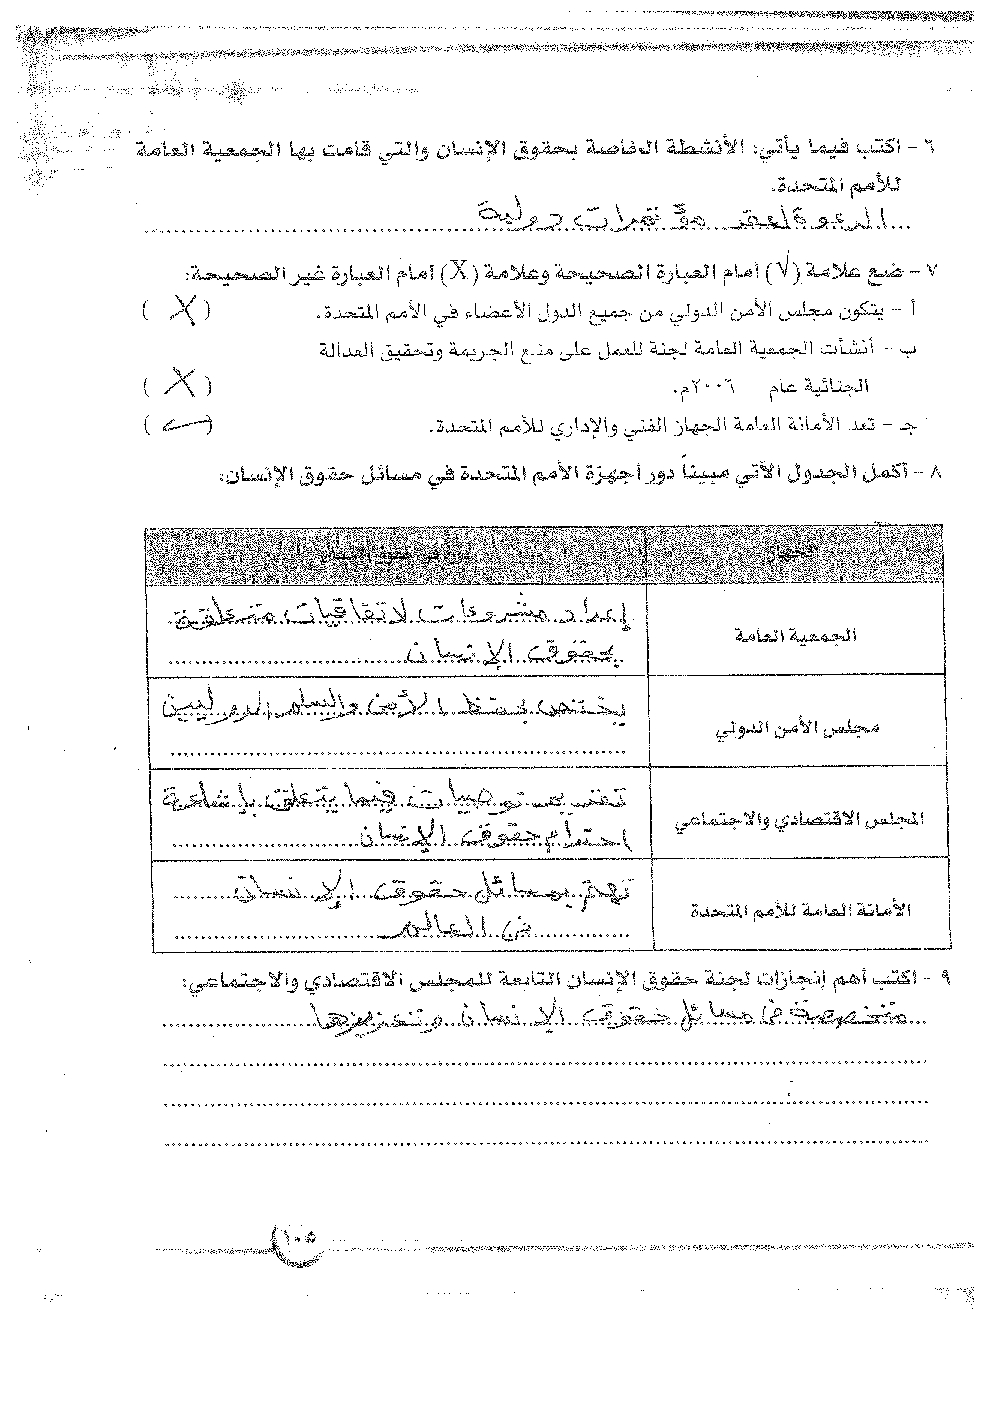 ٦ - اكتب فيما يأتي: الأنشطة الخاصة بحقوق الإنسان والتي قامت بها الجمعية العامة
للأمم المتحدة.
الدعوة لعقد مؤتمرات دولية
٧ - ضع علامة (√) أمام العبارة الصحيحة وعلامة (X) أمام العبارة غير الصحيحة:
أ - يتكون مجلس الأمن الدولي من جميع الدول الأعضاء في الأمم المتحدة. (X)
ب - أنشأت الجمعية العامة لجنة للعمل على منع الجريمة وتحقيق العدالة
الجنائية عام ٢٠٠٦م. (X)
جـ - تعد الأمانة العامة الجهاز الفني والإداري للأمم المتحدة. (✓)
٨ - أكمل الجدول الآتي مبيناً دور أجهزة الأمم المتحدة في مسائل حقوق الإنسان:
الجهاز
الجمعية العامة
إعداد مشروعات لاتفاقيات متعلقة
بحقوق الإنسان
مجلس الأمن الدولي
يختص بحفظ الأمن والسلم الدوليين
المجلس الاقتصادي والاجتماعي
تقديم توصيات فيما يتعلق بإشاعة
احترام حقوق الإنسان
الأمانة العامة للأمم المتحدة
تهتم بمسائل حقوق الإنسان
في العالم
٩ - اكتب أهم إنجازات لجنة حقوق الإنسان التابعة للمجلس الاقتصادي والاجتماعي:
متخصصة في مسائل حقوق الإنسان وتعزيزها
١٠٥